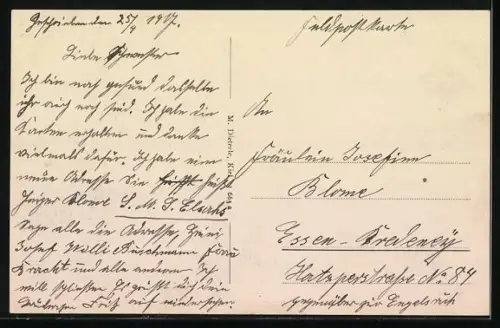 Geschrieben den 25/9 1917.
Liebe Schwester
Ich bin noch gesund dasselbe
ihr auch noch seid. Ich habe die
Karten erhalten und danke
vielmals dafür. Ich habe eine
neue Adresse Die heißt
Heizer Blome S. M. S. Elsaß
Sage alle die Adresse,
Josef Willi Buschmann Frau
Kracht und alle andern Ich
will schließen Es grüßt dich dein
Fritz auf wiedersehen.
M. Dieterle, Kiel 604
Feldpostkarte
An
Fräulein Josefine
Blome
Essen-Bredeney
Hatzperstraße No 84
gegenüber zur